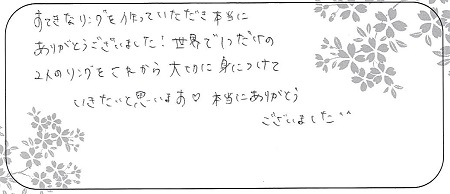 すてきなリングを作っていただき本当に
ありがとうございました!世界で1つだけの
2人のリングをこれから大切に身につけて
いきたいと思います♡ 本当にありがとう
ございました^^